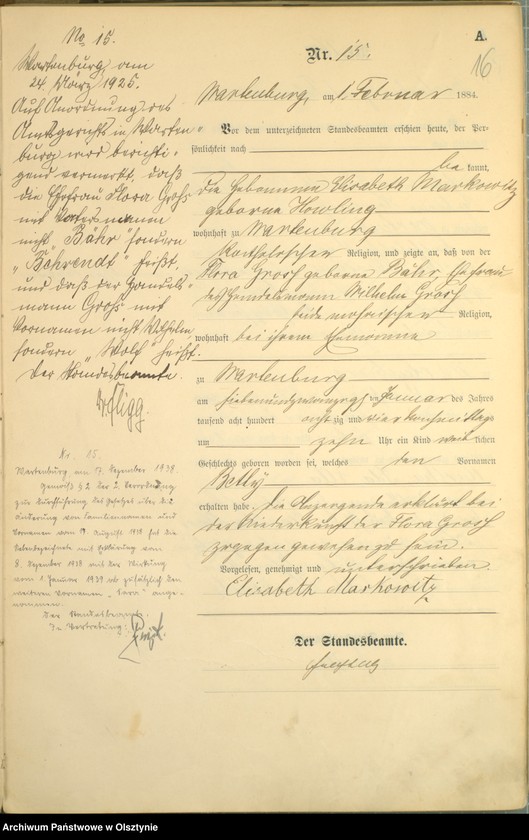 A.
16
Nr. 15.
Wartenburg, am 1. Februar 1884.
Vor dem unterzeichneten Standesbeamten erschien heute, der Per-
sönlichkeit nach
be kannt,
die Hebamme Elisabeth Markowitz
geborne Howling
wohnhaft zu Wartenburg
katholischer Religion, und zeigte an, daß von der
Flora Groß geborne Bähr, Ehefrau
des Handelsmann Wilhelm Groß
beide mosaischer Religion,
wohnhaft bei ihrem Ehemanne
zu Wartenburg
am siebenundzwanzigsten Januar des Jahres
tausend acht hundert achtzig und vier
um zehn Uhr ein Kind weiblichen
Geschlechts geboren worden sei, welches den Vornamen
Betty
erhalten habe. Die Anzeigende erklärt bei
der Niederkunft der Flora Groß
zugegen gewesen zu sein.
Vorgelesen, genehmigt und unterschrieben
Elisabeth Markowitz
Der Standesbeamte.
No 15.
Wartenburg am
24. März 1925.
Auf Anordnung des
Amtsgerichts in Warten-
burg wird berichti-
gend vermerkt, daß
die Ehefrau Flora Groß
mit Vatersnamen
nicht "Bähr" sondern
"Behrendt" heißt,
und daß der Handels-
mann Groß mit
Vornamen nicht Wilhelm,
sondern "Wolf" heißt.
Der Standesbeamte.
Nr. 15.
Wartenburg am 17. Dezember 1938
Gemäß § 2 der 2. Verordnung
zur Durchführung des Gesetzes über die
Änderung von Familiennamen und
Vornamen vom 17. August 1938 hat die
vom 1. Januar 1939 ab zusätzlich den
weiteren Vornamen "Sara" ange-
nommen.
Der Standesbeamte
In Vertretung:
Archiwum Państwowe w Olsztynie